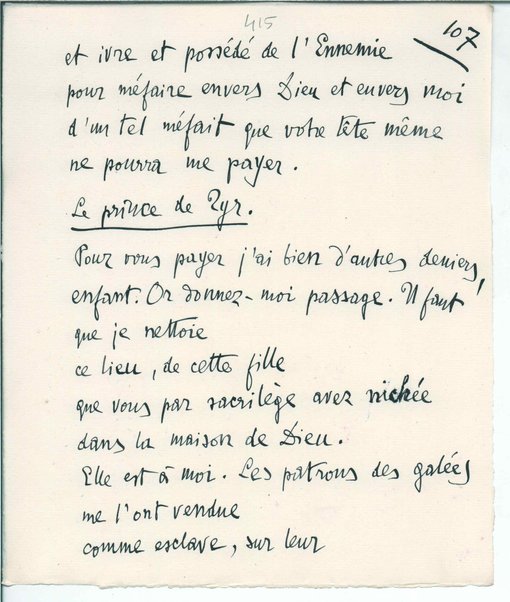 415
107
et ivre et possédé de l'Ennemie
pour méfaire envers Dieu et envers moi
d'un tel méfait que votre tête même
ne pourra me payer.
Le prince de Tyr.
Pour vous payer j'ai bien d'autres deniers,
enfant. Or donnez-moi passage. Il faut
que je nettoie
ce lieu, de cette fille
que vous par sacrilège avez nichée
dans la maison de Dieu.
Elle est à moi. Les patrons des galées
me l'ont vendue
comme esclave, sur leur